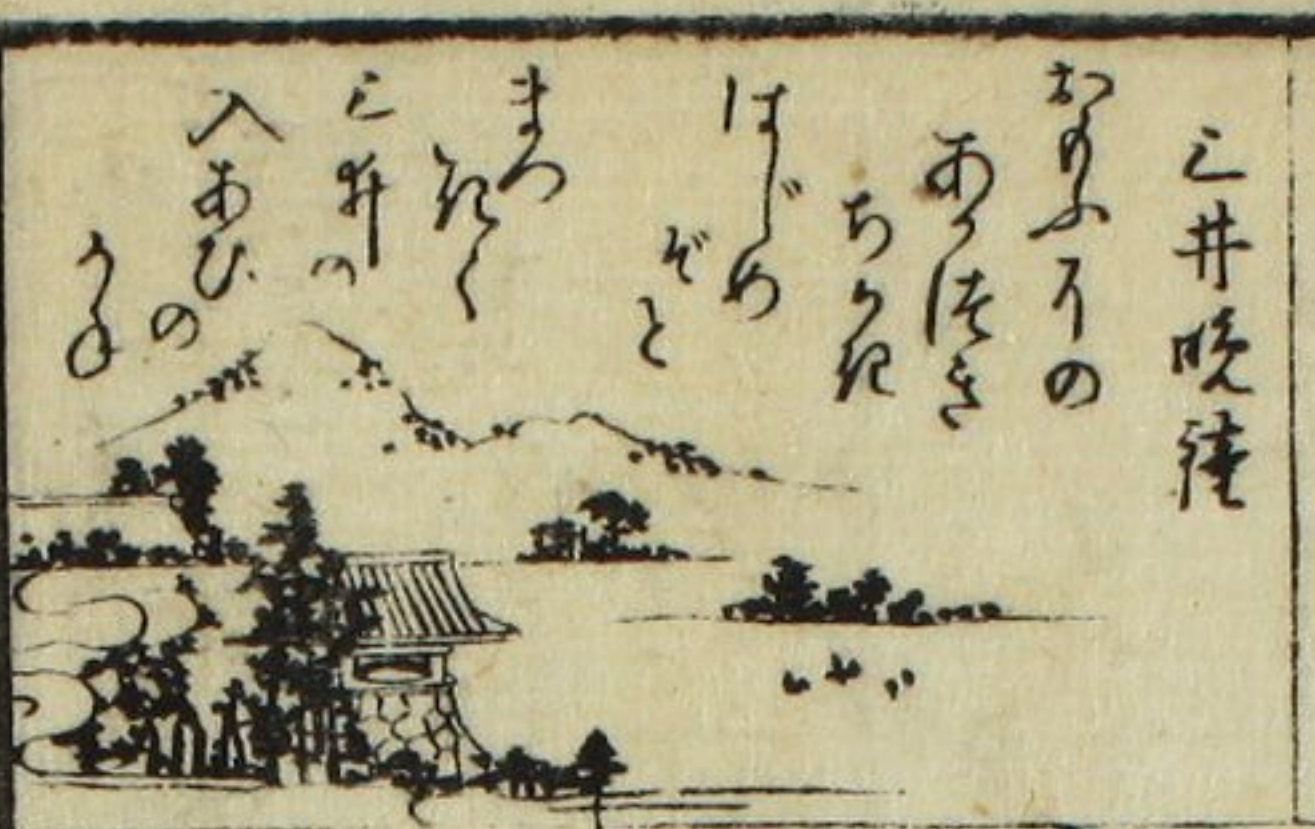 三井晩鐘
おもふその
あかつき
ちかき
はじめ
ぞと
まつ
きく
三井の
入あひの
かね